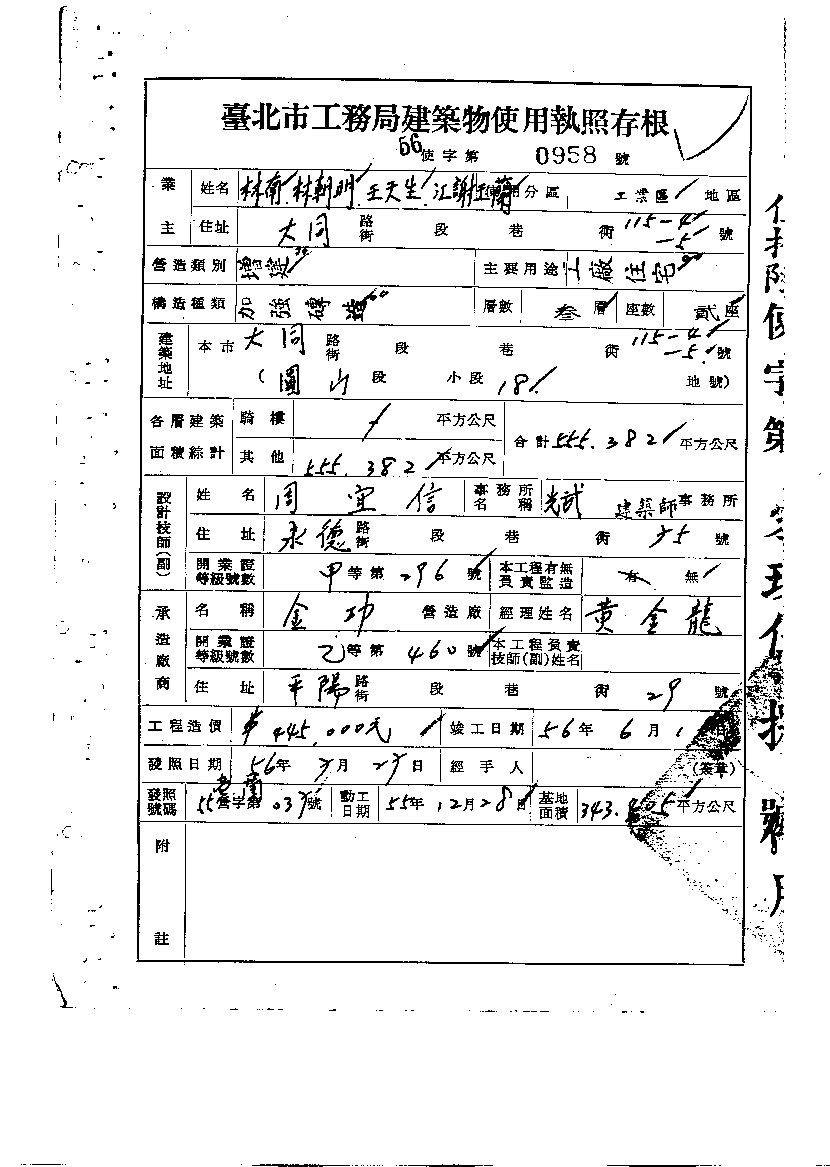 臺北市工務局建築物使用執照存根
56使字第 0958 號
業主 姓名 林南 林朝明 王天生 江謝玉蘭 使用分區 工業區 地區
住址 大同 路街 段 巷 街 115-4 -5 號
營造類別 增建 主要用途 工廠住宅
構造種類 加強磚造 層數 叁層 座數 貳座
建築地址 本市 大同 路街 段 巷 街 115-4 -5 號
(圓山段 小段 181 地號)
各層建築面積綜計 騎樓 平方公尺 合計 555.382 平方公尺
其他 555.382 平方公尺
設計技師(副) 姓名 周宜信 事務所名稱 光武 建築師事務所
住址 永德 路街 段 巷 街 35 號
開業證等級號數 甲等第 296 號 本工程有無負責監造 有 無
承造廠商 名稱 金功 營造廠 經理姓名 黃金龍
開業證等級號數 乙等第 460 號 本工程負責技師(副)姓名
住址 平陽 路街 段 巷 街 29 號
工程造價 $445,000元 竣工日期 56年 6月 1 日
發照日期 56年 月 日 經手人 (簽章)
發照號碼 55營字第 號 動工日期 55年12月28日 基地面積 343. 平方公尺
附註